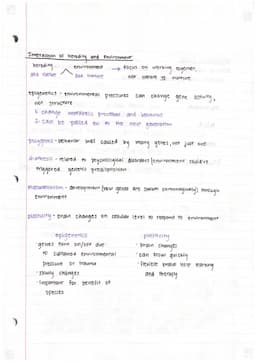 Interaction of heredity and Environment
heredity environment → focus on working together,
aka nature aka nurture not nature vs nurture
epigenetics - environmental pressures can change gene activity,
not structure
1. change metabolic processes and behavior
2. can be passed on to the next generation
polygenic - behavior was caused by many genes, not just one
diathesis - related to psychological disorders (environment could've
triggered genetic predisposition
maturationism - development (how genes are shown chronologically) through
environment
plasticity - brain changes on cellular level to respond to environment
epigenetics plasticity
· genes turn on/off due · brain changes
to sustained environmental · can occur quickly
pressure or trauma · flexible brains help learning
· slowly changes and therapy
· important for benefit of
species